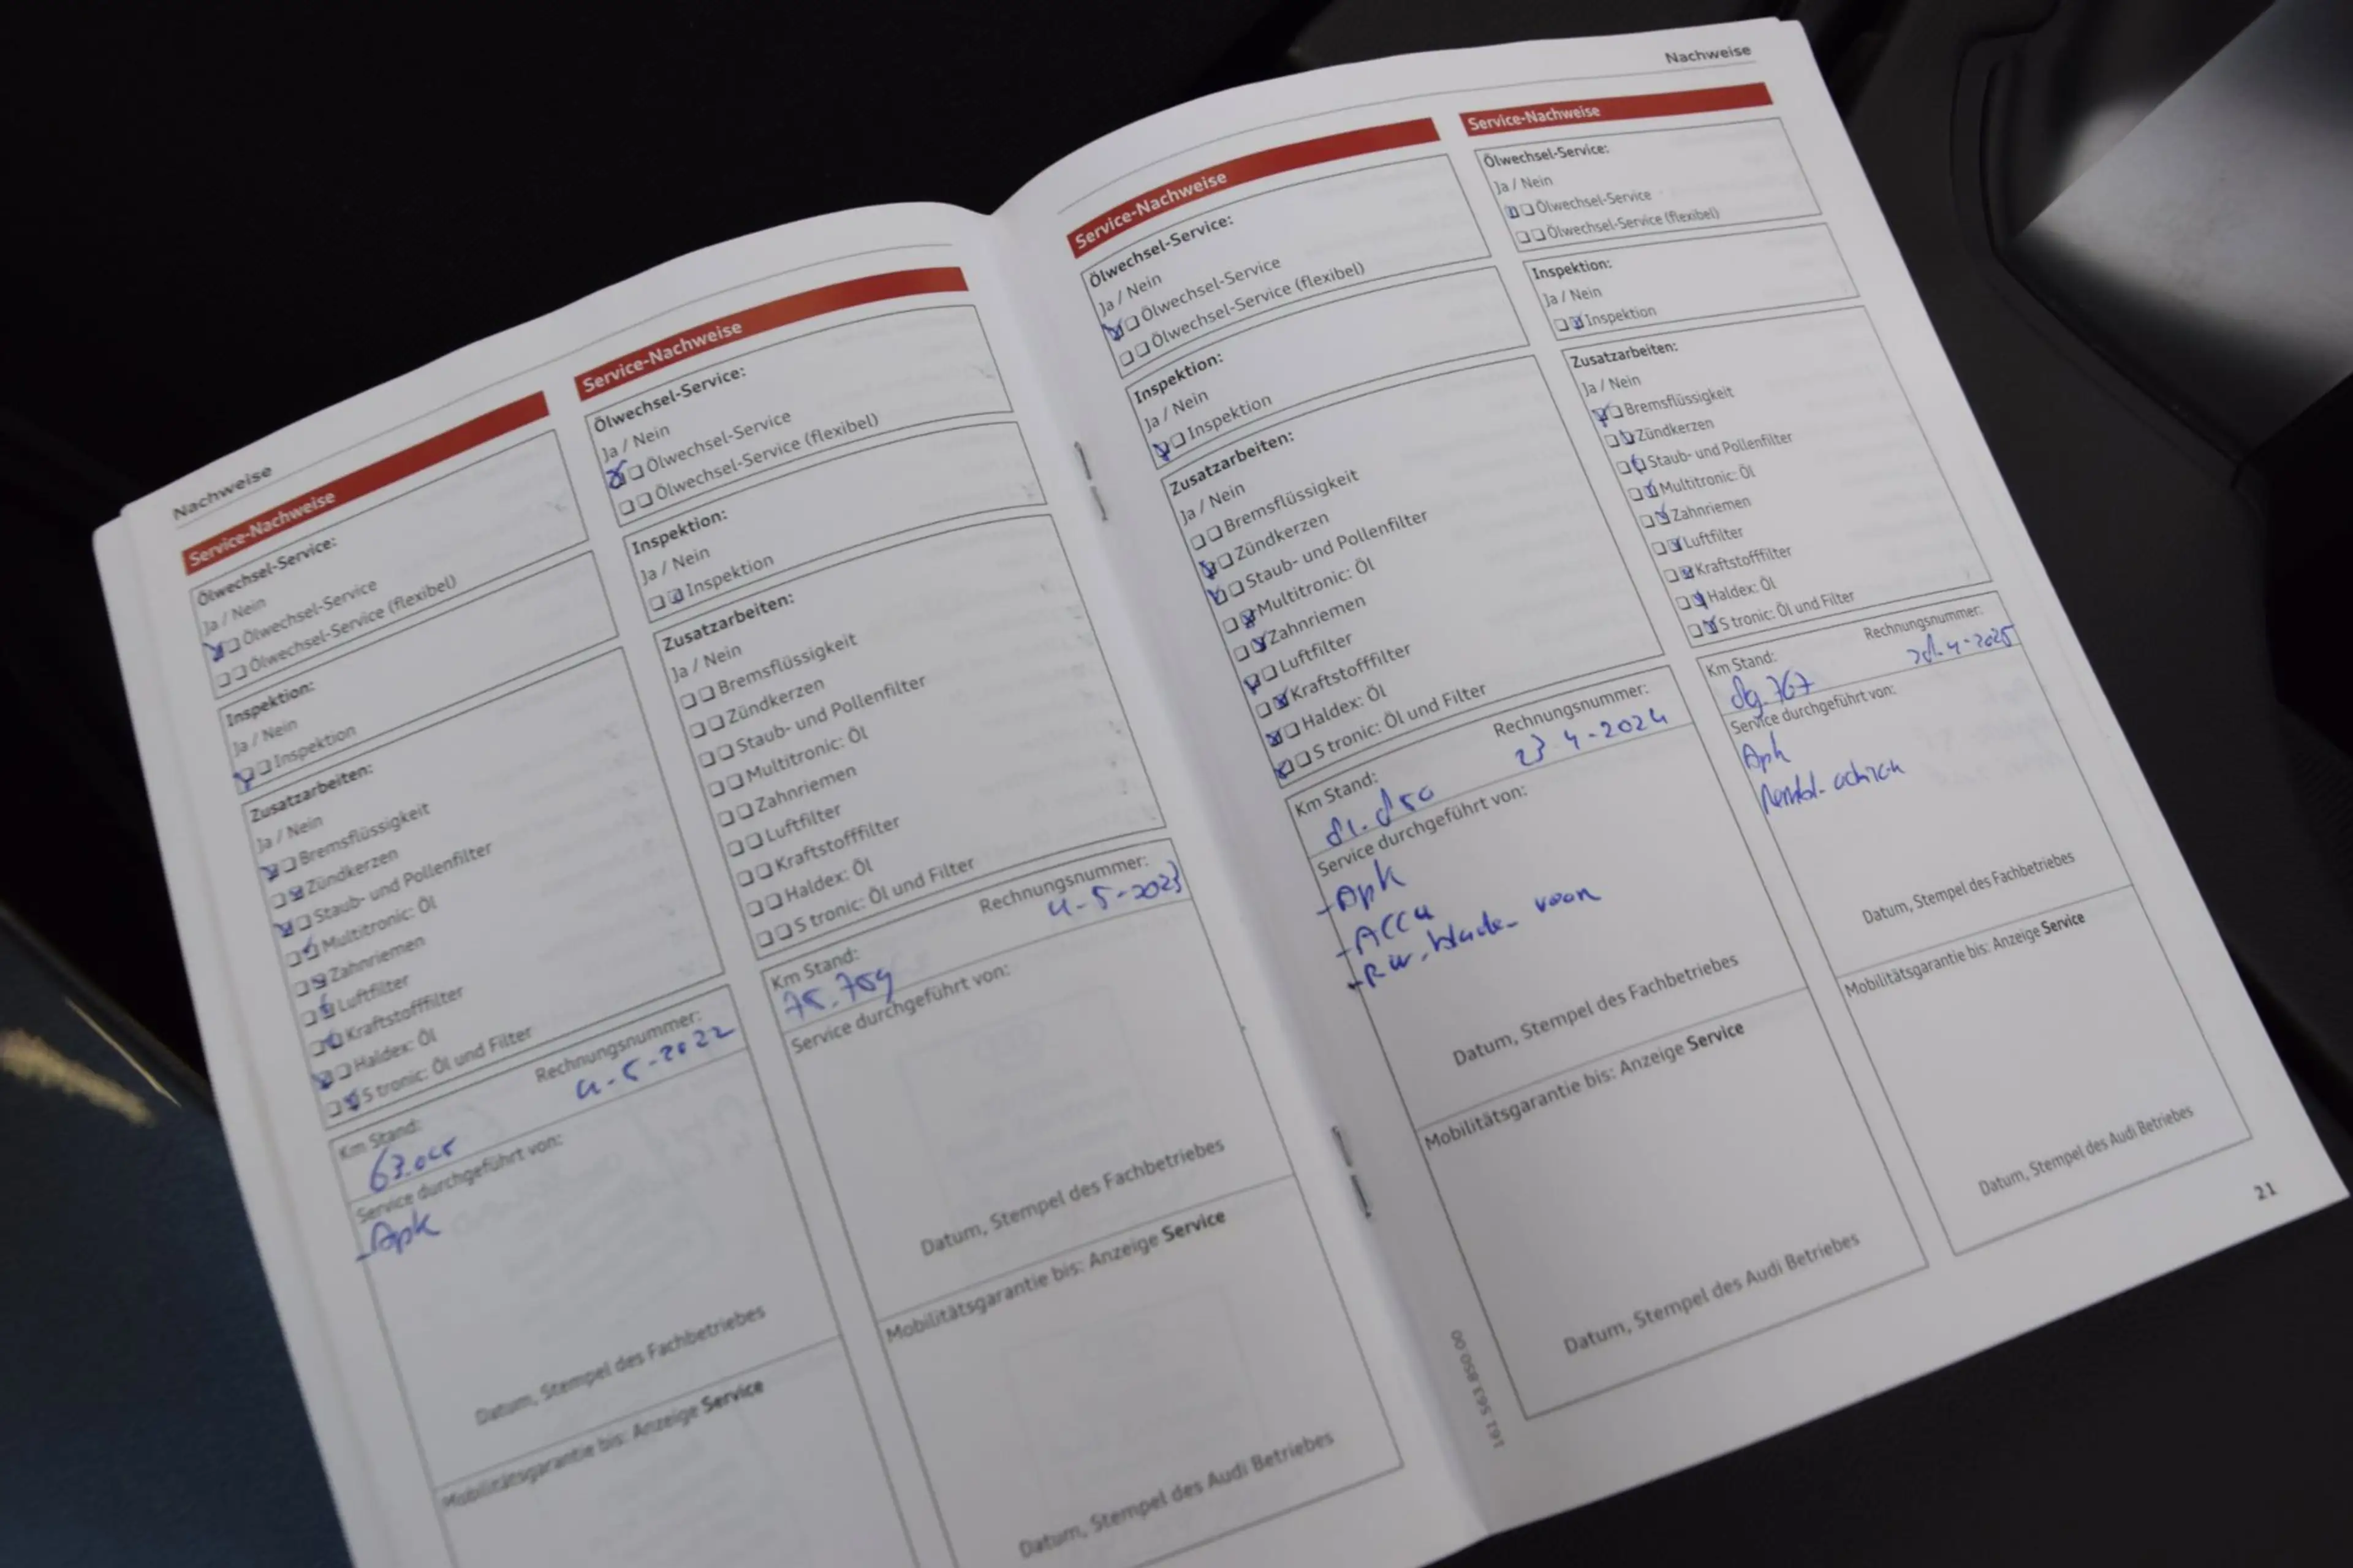 Nachweise
Service-Nachweise
Ölwechsel-Service:
Ja / Nein
Ölwechsel-Service
Ölwechsel-Service (flexibel)
Inspektion:
Ja / Nein
Inspektion
Zusatzarbeiten:
Ja / Nein
Bremsflüssigkeit
Zündkerzen
Staub- und Pollenfilter
Multitronic: Öl
Zahnriemen
Luftfilter
Kraftstofffilter
Haldex: Öl
S tronic: Öl und Filter
Km Stand:
Rechnungsnummer:
4-5-2022
Service durchgeführt von:
-Apk
Datum, Stempel des Fachbetriebes
Mobilitätsgarantie bis: Anzeige Service
Service-Nachweise
Ölwechsel-Service:
Ja / Nein
Ölwechsel-Service
Ölwechsel-Service (flexibel)
Inspektion:
Ja / Nein
Inspektion
Zusatzarbeiten:
Ja / Nein
Bremsflüssigkeit
Zündkerzen
Staub- und Pollenfilter
Multitronic: Öl
Zahnriemen
Luftfilter
Kraftstofffilter
Haldex: Öl
S tronic: Öl und Filter
Km Stand:
Rechnungsnummer:
75.759
4-5-2023
Service durchgeführt von:
Datum, Stempel des Fachbetriebes
Mobilitätsgarantie bis: Anzeige Service
Datum, Stempel des Audi Betriebes
Service-Nachweise
Ölwechsel-Service:
Ja / Nein
Ölwechsel-Service
Ölwechsel-Service (flexibel)
Inspektion:
Ja / Nein
Inspektion
Zusatzarbeiten:
Ja / Nein
Bremsflüssigkeit
Zündkerzen
Staub- und Pollenfilter
Multitronic: Öl
Zahnriemen
Luftfilter
Kraftstofffilter
Haldex: Öl
S tronic: Öl und Filter
Km Stand:
Rechnungsnummer:
81.850
23-4-2024
Service durchgeführt von:
-Apk
-ACCU
-R.W. voor
Datum, Stempel des Fachbetriebes
Mobilitätsgarantie bis: Anzeige Service
Datum, Stempel des Audi Betriebes
161.563.850.00
Nachweise
Service-Nachweise
Ölwechsel-Service:
Ja / Nein
Ölwechsel-Service
Ölwechsel-Service (flexibel)
Inspektion:
Ja / Nein
Inspektion
Zusatzarbeiten:
Ja / Nein
Bremsflüssigkeit
Zündkerzen
Staub- und Pollenfilter
Multitronic: Öl
Zahnriemen
Luftfilter
Kraftstofffilter
Haldex: Öl
S tronic: Öl und Filter
Km Stand:
Rechnungsnummer:
89.767
Service durchgeführt von:
Apk
Datum, Stempel des Fachbetriebes
Mobilitätsgarantie bis: Anzeige Service
Datum, Stempel des Audi Betriebes
21